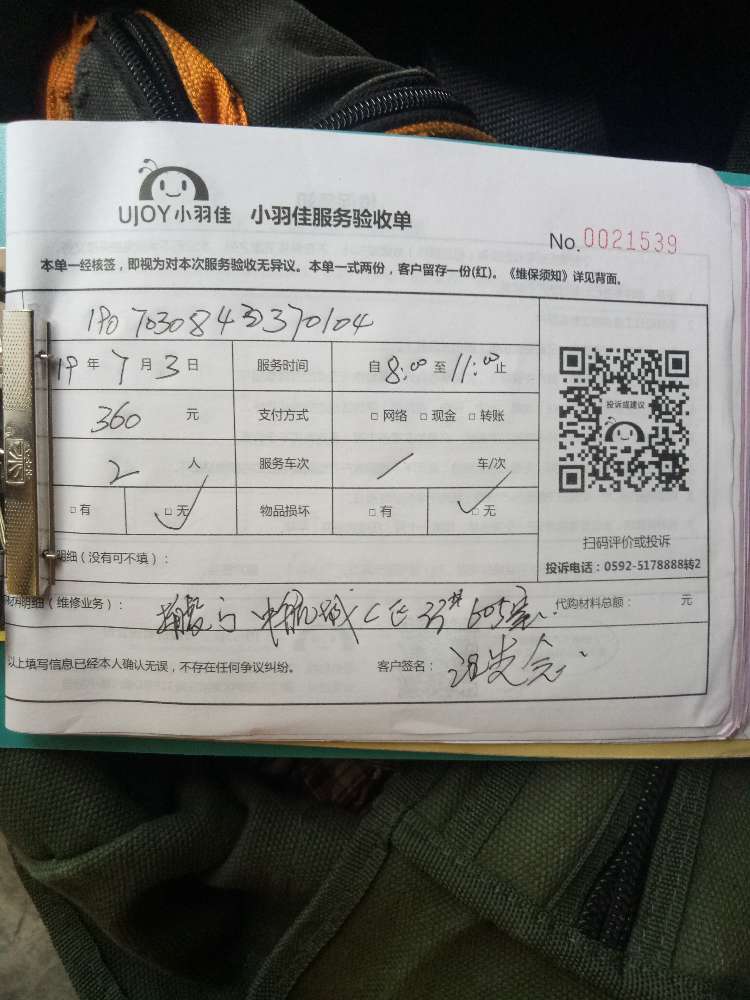 UJOY小羽佳 小羽佳服务验收单
No. 0021539
本单一经核签，即视为对本次服务验收无异议。本单一式两份，客户留存一份(红)。《维保须知》详见背面。
19年7月3日 服务时间 自8:00至11:00止
360元 支付方式 □网络 □现金 □转账
投诉或建议
2人 服务车次 / 车/次
□有 □无 物品损坏 □有 □无
扫码评价或投诉
明细（没有可不填）：
投诉电话：0592-5178888转2
材料明细（维修业务）： 中航城C区 605室 代购材料总额： 元
以上填写信息已经本人确认无误，不存在任何争议纠纷。 客户签名：